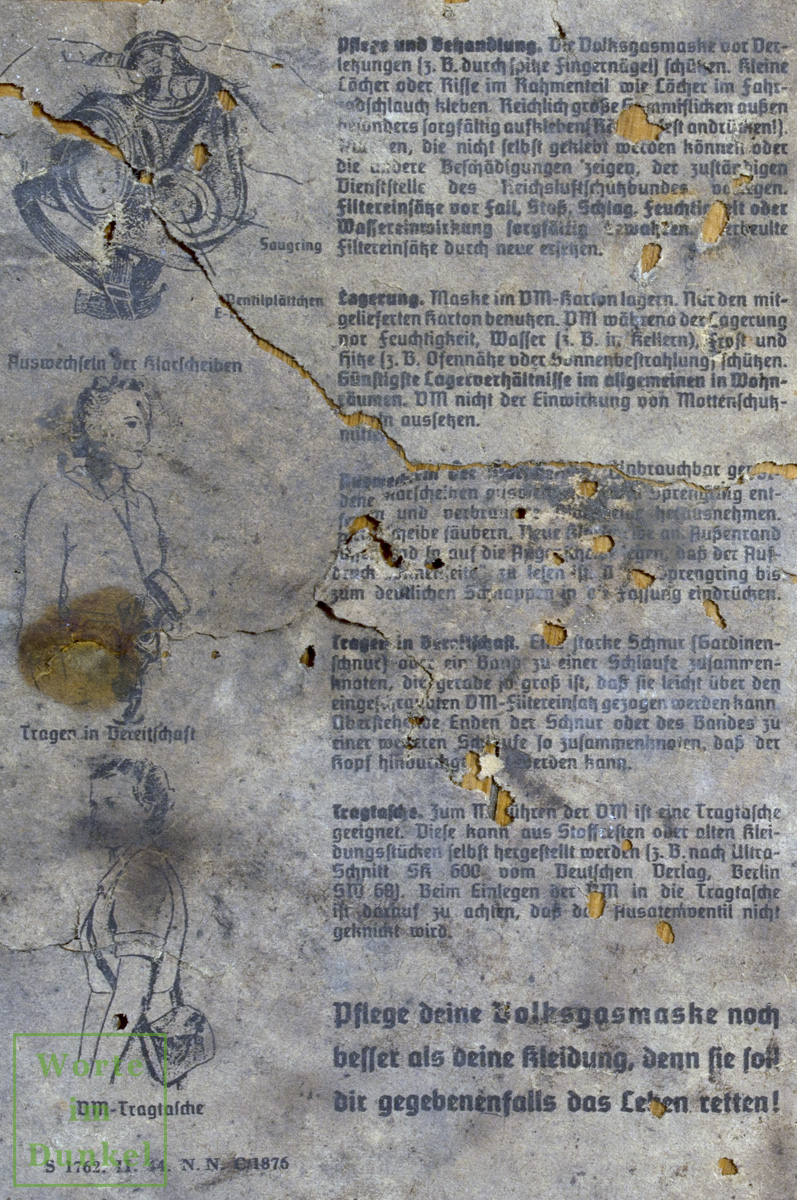 Saugring
Ventilplättchen
Auswechseln der Klarscheiben
Tragen in Bereitschaft
VM-Tragtasche
S 1762. 11. 44. N. N. C/1876
Pflege und Behandlung. Die Volksgasmaske vor Ver-
letzungen (z. B. durch spitze Fingernägel) schützen. Kleine
Löcher oder Risse im Rahmenteil wie Löcher im Fahr-
radschlauch kleben. Reichlich große Gummiflicken außen
besonders sorgfältig aufkleben fest andrücken!).
die nicht selbst geklebt werden können oder
die andere Beschädigungen zeigen, der zuständigen
Dienststelle des Reichsluftschutzbundes vorlegen.
Filtereinsätze vor Fall, Stoß, Schlag, Feuchtigkeit oder
Wassereinwirkung sorgfältig bewahren. Verbeulte
Filtereinsätze durch neue ersetzen.
Lagerung. Maske im VM-Karton lagern. Nur den mit-
gelieferten Karton benutzen. VM während der Lagerung
vor Feuchtigkeit, Wasser (z. B. in Kellern), Frost und
Hitze (z. B. Ofennähe oder Sonnenbestrahlung) schützen.
Günstigste Lagerverhältnisse im allgemeinen in Wohn-
räumen. VM nicht der Einwirkung von Mottenschutz-
mitteln aussetzen.
Auswechseln der Klarscheiben. Unbrauchbar gewor-
dene Klarscheiben Sprengring ent-
fernen und verbrauchte herausnehmen.
scheibe säubern. Neue am Außenrand
auf die legen, daß der Auf-
druck „Innenseite“ zu lesen ist. Sprengring bis
zum deutlichen Schnappen in die Fassung eindrücken.
Tragen in Bereitschaft. Eine starke Schnur (Gardinen-
schnur) oder ein Band zu einer Schlaufe zusammen-
knoten, die gerade so groß ist, daß sie leicht über den
eingeschraubten VM-Filtereinsatz gezogen werden kann.
Überstehende Enden der Schnur oder des Bandes zu
einer weiteren Schlaufe so zusammenknoten, daß der
Kopf hindurchgesteckt werden kann.
Tragtasche. Zum Mitführen der VM ist eine Tragtasche
geeignet. Diese kann aus Stoffresten oder alten Klei-
dungsstücken selbst hergestellt werden (z. B. nach Ultra-
Schnitt SK 600 vom Deutschen Verlag, Berlin
SW 68). Beim Einlegen der VM in die Tragtasche
ist darauf zu achten, daß das Ausatemventil nicht
geknickt wird.
Pflege deine Volksgasmaske noch
besser als deine Kleidung, denn sie soll
dir gegebenenfalls das Leben retten!
Worte
im
Dunkel